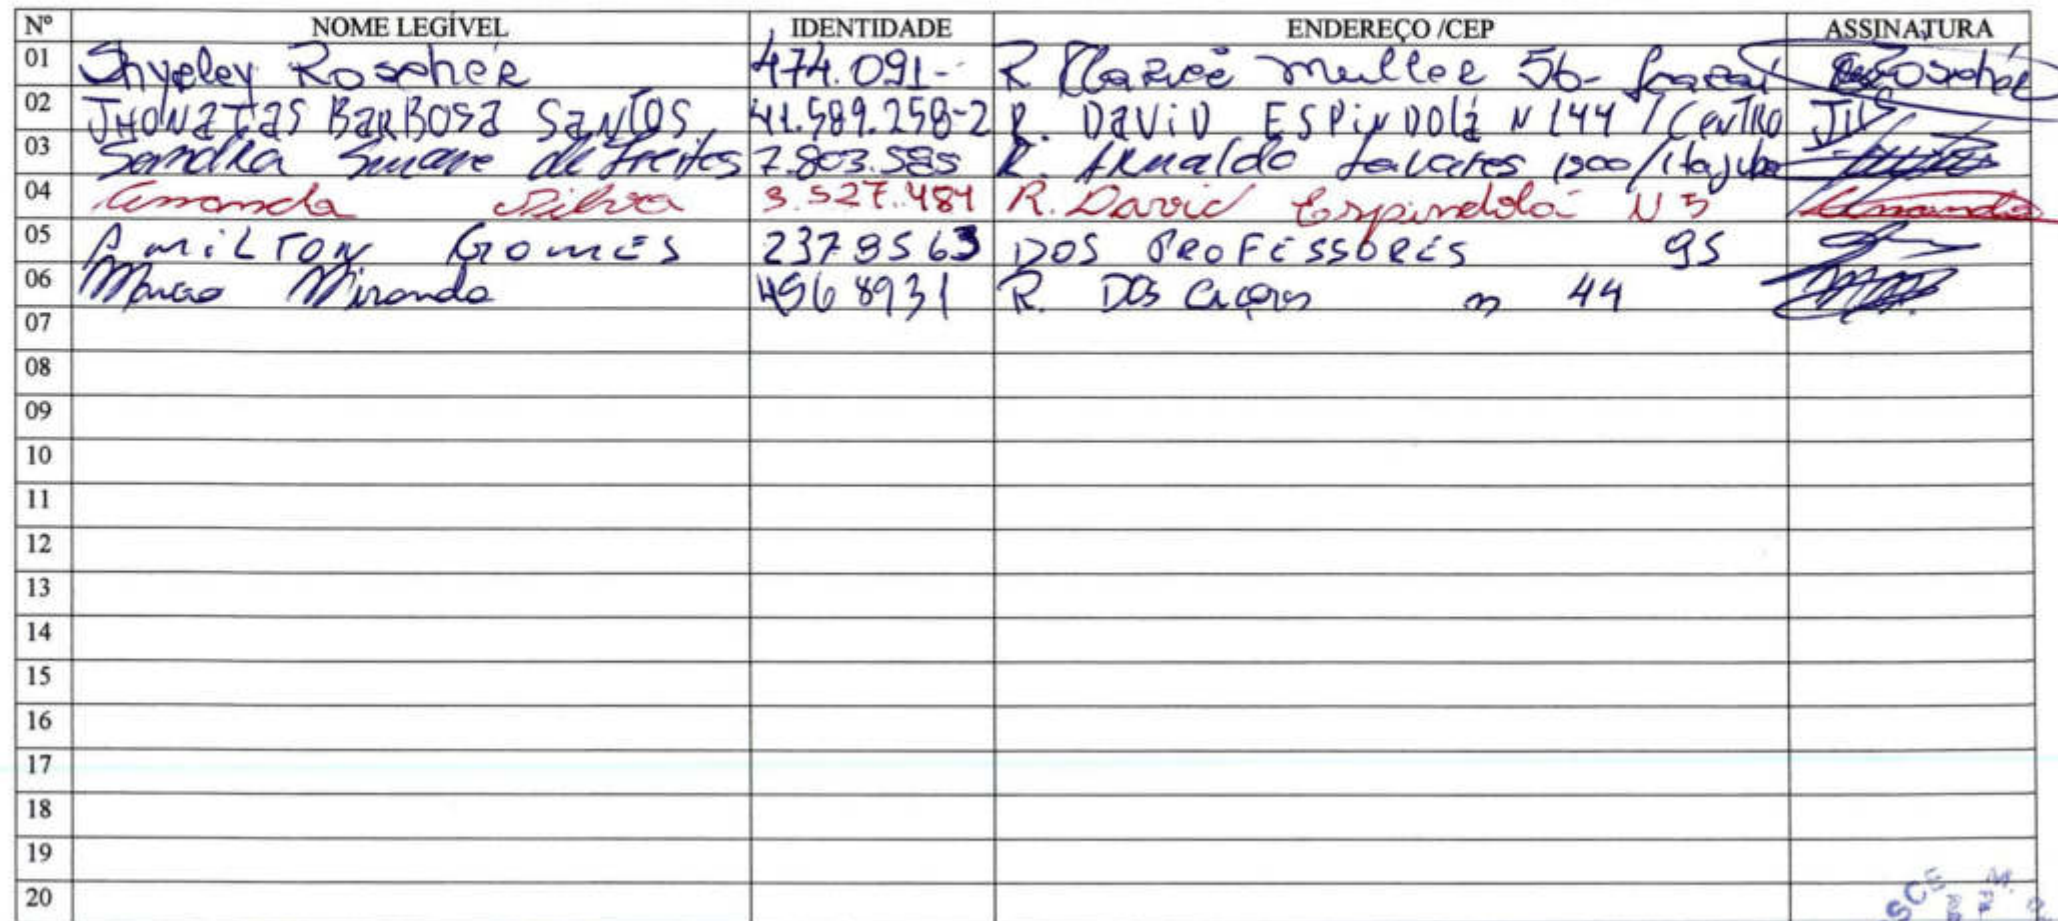 Nº NOME LEGÍVEL IDENTIDADE ENDEREÇO /CEP ASSINATURA
01 Shyrley Roscher 474.091- R Muller 56- Roscher
02 JHONATAS BARBOSA SANTOS 41.589.258-2 R. DAVID ESPINDOLá N 144 / CENTRO
03 Sandra de Freitas 7.803.585 R. Arnaldo Tavares 1300/Itajuba
04 Amanda Silva 3.527.484 R. David Espindolá N 5 Amanda
05 AMILTON GOMES 2379563 DOS PROFESSORES 95
06 Miranda 4568931 R. DOS n 44
07
08
09
10
11
12
13
14
15
16
17
18
19
20